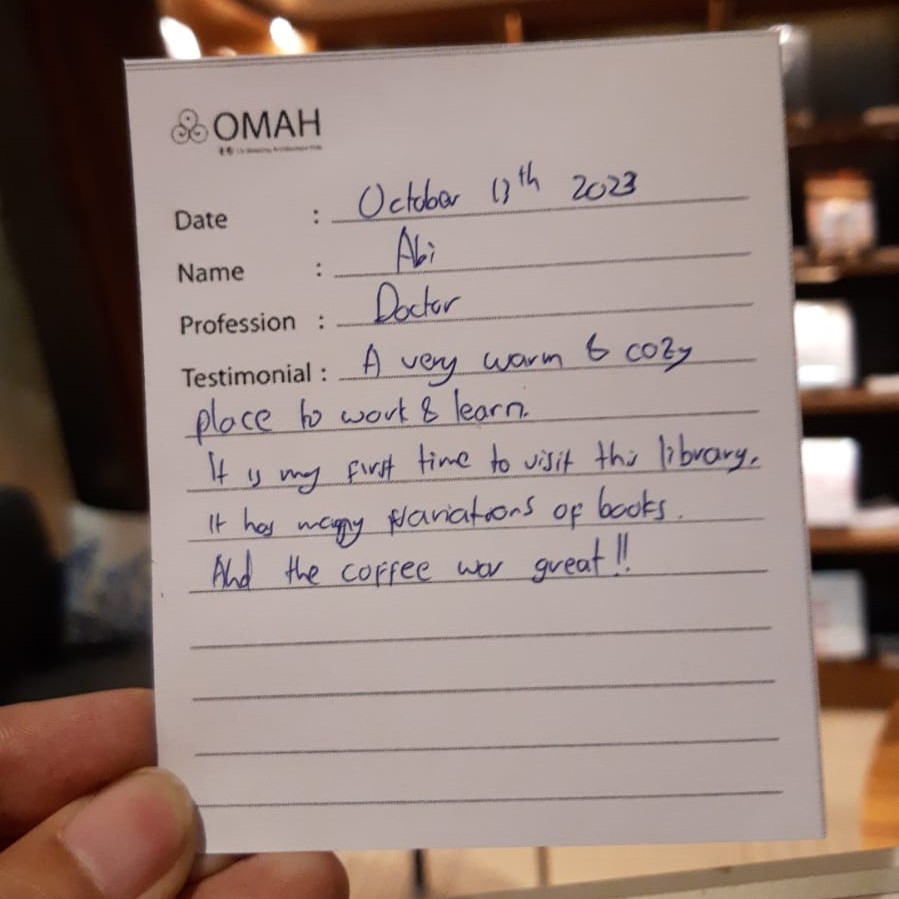 OMAH
Date : October 13th 2023
Name : Abi
Profession : Doctor
Testimonial : A very warm & cozy
place to work & learn.
It is my first time to visit this library.
It has many variations of books.
And the coffee was great!!